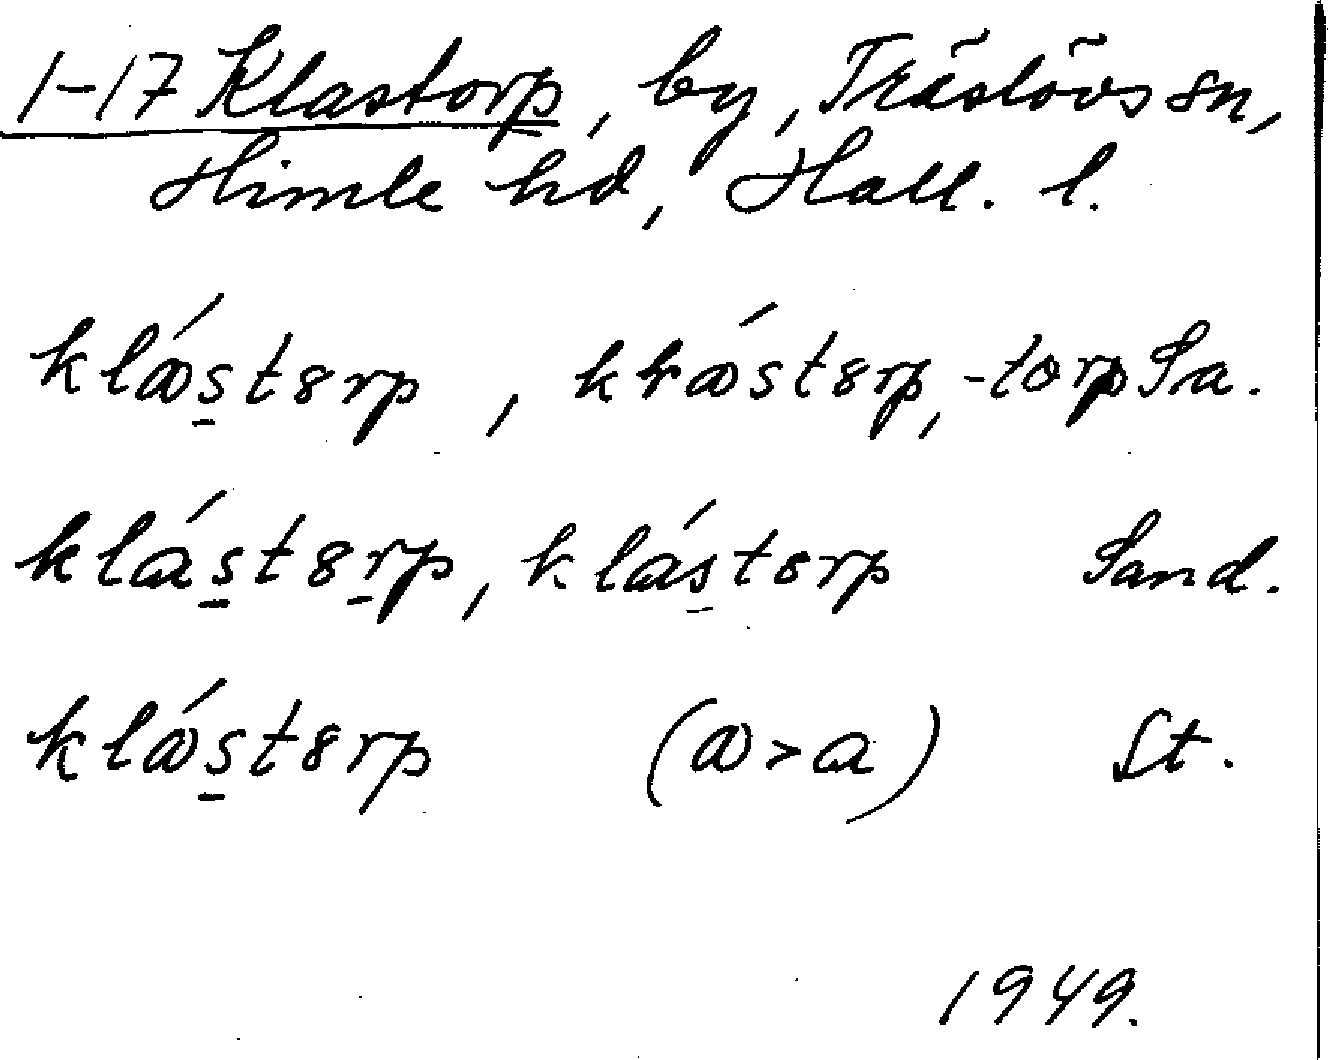 1-17 Klastorp, by, Träslövs sn,
Himle hd, Hall. l.
klás̠tərp, krástərp, -torp Sa.
klás̠tər̠p, klás̠tərp Sand.
klás̠tərp (a>a) St.
1949.